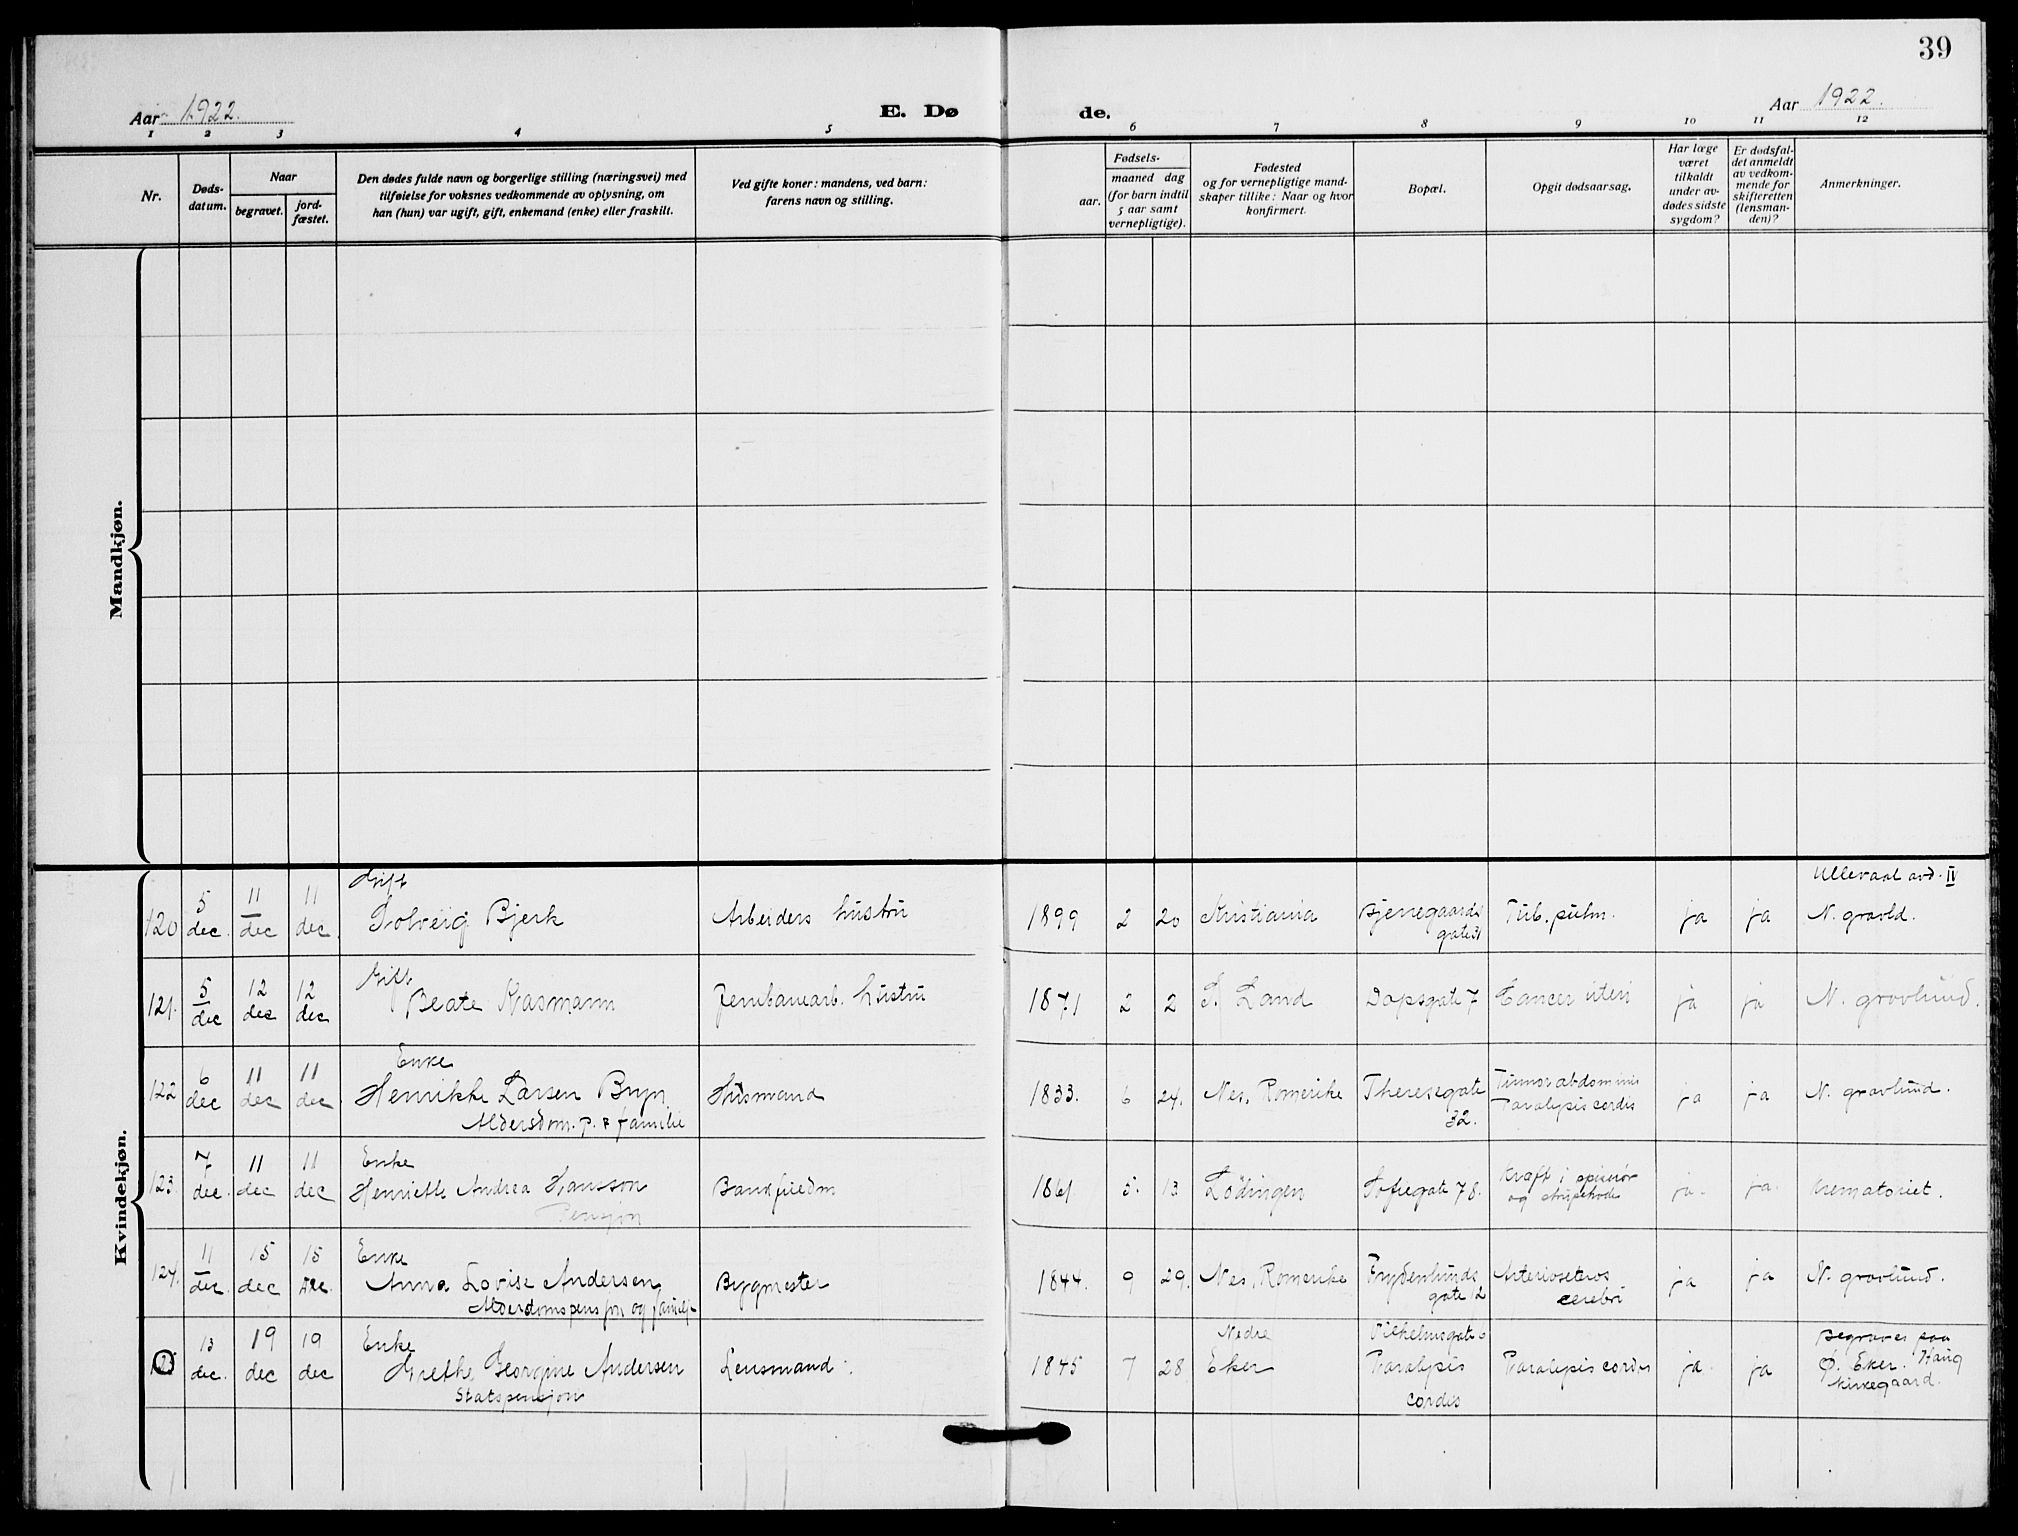 39
Aar 1922.
E. Dø
de.
Aar 1922.
1 2 3 4 5 6 7 8 9 10 11 12
Nr.
Døds-
datum.
Naar
begravet.
jord-
fæstet.
Den dødes fulde navn og borgerlige stilling (næringsvei) med
tilføielse for voksnes vedkommende av oplysning, om
han (hun) var ugift, gift, enkemand (enke) eller fraskilt.
Ved gifte koner: mandens, ved barn:
farens navn og stilling.
Fødsels-
aar.
maaned dag
(for barn indtil
5 aar samt
vernepligtige).
Fødested
og for vernepligtige mand-
skaper tillike: Naar og hvor
konfirmert.
Bopæl.
Opgit dødsaarsag.
Har læge
været
tilkaldt
under av-
dødes sidste
sygdom?
Er dødsfal-
det anmeldt
av vedkom-
mende for
skifteretten
(lensman-
den)?
Anmerkninger.
Mandkjøn.
Kvindekjøn.
Gift
Ullevaal avd. IV
5 11 11
120 dec. dec dec. Solveig Bjerk Arbeiders hustru 1899 2 20 Kristiania Bjerregaards Tub. pulm. ja ja N. gravld.
gate 31
Gift
5 12 12
121. dec dec dec Beate Kasmann Jernbanearb. hustru 1871 2 2 S. Land Dopsgate 7 Cancer uteri ja ja N. gravlund.
Enke
6 11 11
122 dec dec dec. Henrikke Larsen Bryn Husmand 1833. 6 24. Nes, Romerike Theresegate Tumor abdominis ja ja N. gravlund.
Aldersdom. p. & familie
32.
Paralysis cordis
7 11 11 Enke
123. dec. dec dec Henriette Andrea Hansson 1861 5. 13 Lödingen Sofiegate 78. Kræft i spiserør ja. ja. Krematoriet.
Pensjon
og strupehode
11 15 15 Enke
124. dec. dec dec. Anna Lovise Andersen Bygmester 1844. 9 29. Nes, Romerike Frydenlunds Arterioscleros ja ja N. gravlund.
Alderdomspensjon og familie
gate 12
cerebri
13 19 19 Enke
Nedre
Vilhelmsgate
Begraves paa
125 dec. dec dec Grethe Georgine Andersen Lensmand. 1845 7 28. Eker Paralysis Paralysis cordis ja. ja Ø. Eker. Haug
Statspensjon
cordis
kirkegaard.